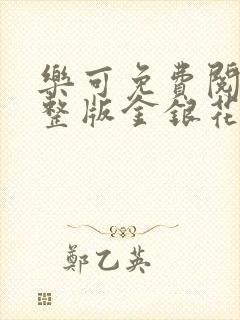 樂可免費閱
整版金銀花
鄭乙英